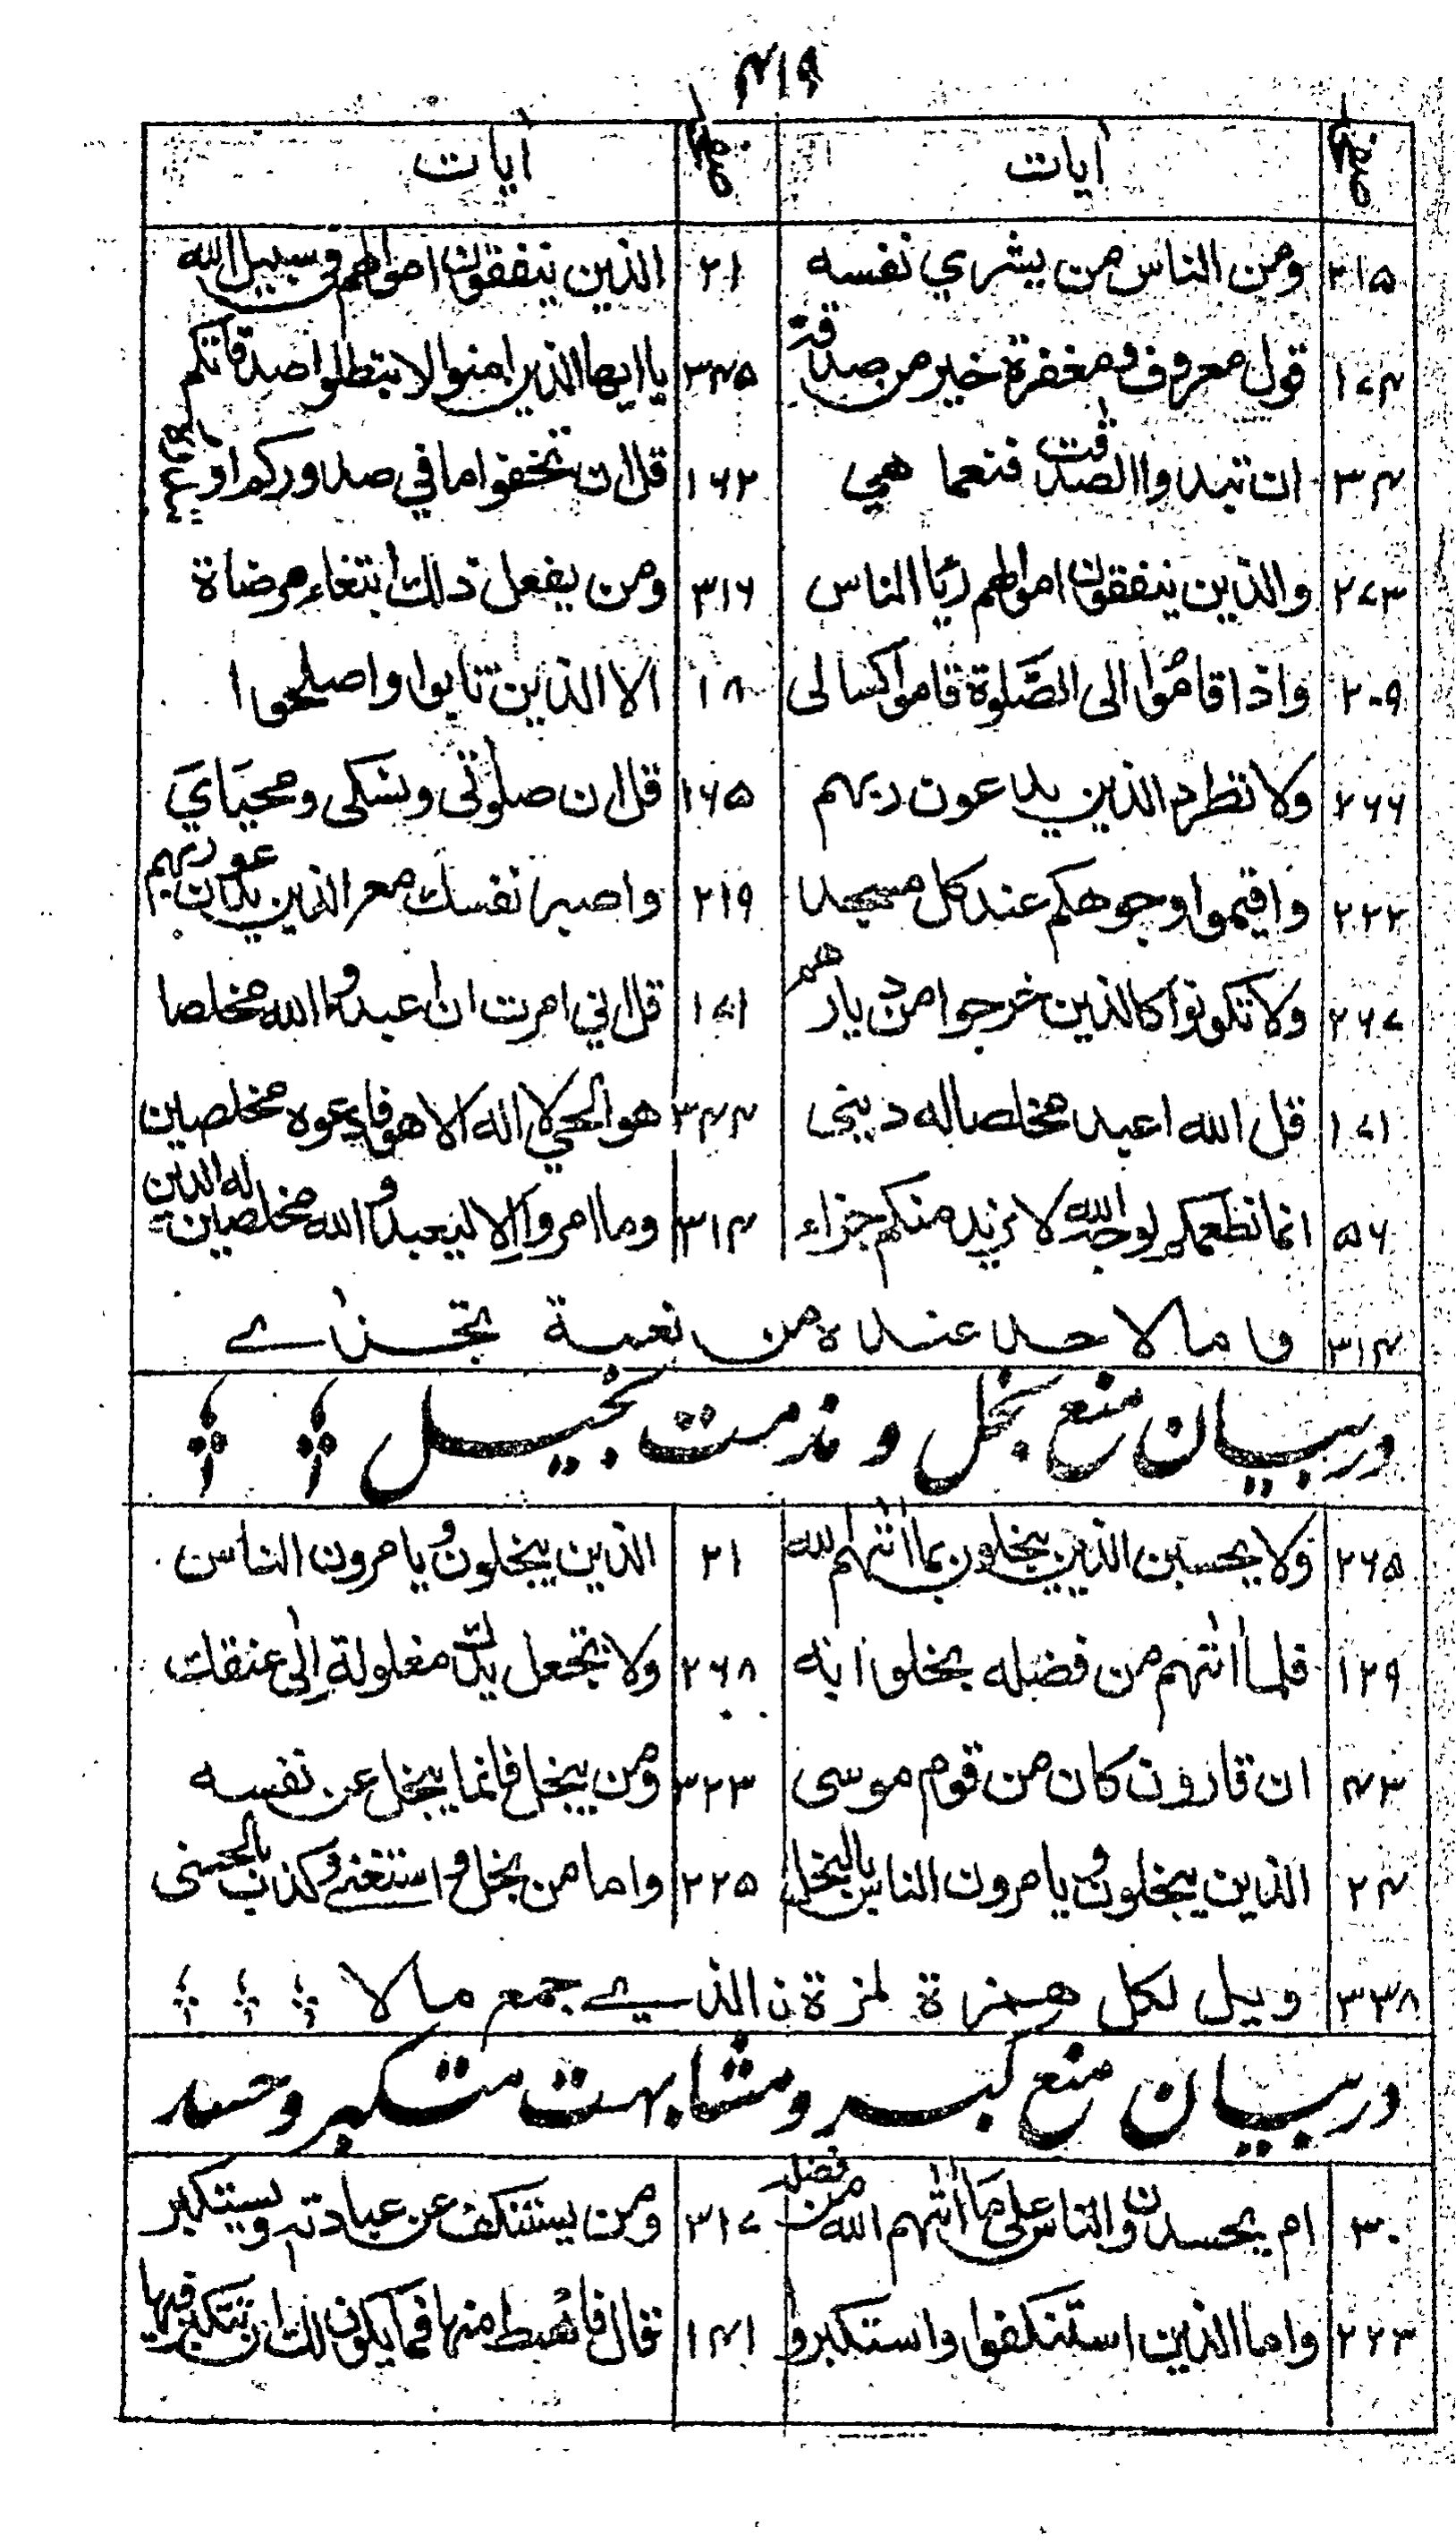 ۴۱۹
صفحہ آیات صفحہ آیات
۲۱۵ ومن الناس من يشري نفسه ۲۱ الذين ينفقون اموالهم في سبيل الله
۱۷۴ قول معروف ومغفرة خير من صدقة ۳۴۵ يا ايها الذين امنوا لا تبطلوا صدقاتكم
۳۴ ان تبدوا الصدقت فنعما هي ۱۶۲ قل ان تخفوا ما في صدوركم او
۲۷۳ والذين ينفقون اموالهم رئا الناس ۳۱۶ ومن يفعل ذلك ابتغاء مرضاة
۲۰۹ واذا قاموا الى الصّلوة قاموا كسالى ۱۸ الا الذين تابوا واصلحوا
۲۶۶ ولا تطرد الذين يدعون ربهم ۱۶۵ قل ان صلوتى ونسكى ومحيايَ
۲۲۲ واقيموا وجوهكم عند كل مسجد ۲۱۹ واصبر نفسك مع الذين يدعون ربهم
۲۶۷ ولا تكونوا كالذين خرجوا من ديارهم ۱۷۱ قل اني امرت ان اعبدوا الله مخلصا
۱۷۱ قل الله اعبد مخلصا له ديني ۳۴۴ هو الحي لا اله الا هو فادعوه مخلصين
۵۶ انما نطعمكم لوجه الله لا نريد منكم جزاء ۳۱۴ وما امروا الا ليعبدوا الله مخلصين له الدين
۳۱۴ و ما لاحد عنده من نعمة تجزٰے
در بیان منع بخل و مذمت بخیل
۲۶۵ ولا يحسبن الذين يبخلون بما اتٰهم الله ۲۱ الذين يبخلون ويامرون الناس
۱۲۹ فلما اتٰهم من فضله بخلوا به ۲۶۸ ولا تجعل يدك مغلولة الى عنقك
۴۳ ان قارون كان من قوم موسى ۳۲۳ ومن يبخل فانما يبخل عن نفسه
۲۴ الذين يبخلون ويامرون الناس بالبخل ۲۲۵ واما من بخل واستغنے وكذب بالحسنى
۳۳۸ ويل لكل همزة لمزة ن الذے جمع مالا
در بیان منع کبر و مشابہت متکبر و حسد
۳۰ ام يحسدون الناس على ما اتٰهم الله من فضله ۳۱۷ ومن يستنكف عن عبادته ويستكبر
۲۲۳ واما الذين استنكفوا واستكبروا ۱۴۱ قال فاهبط منها فما يكون لك ان تتكبر فيها